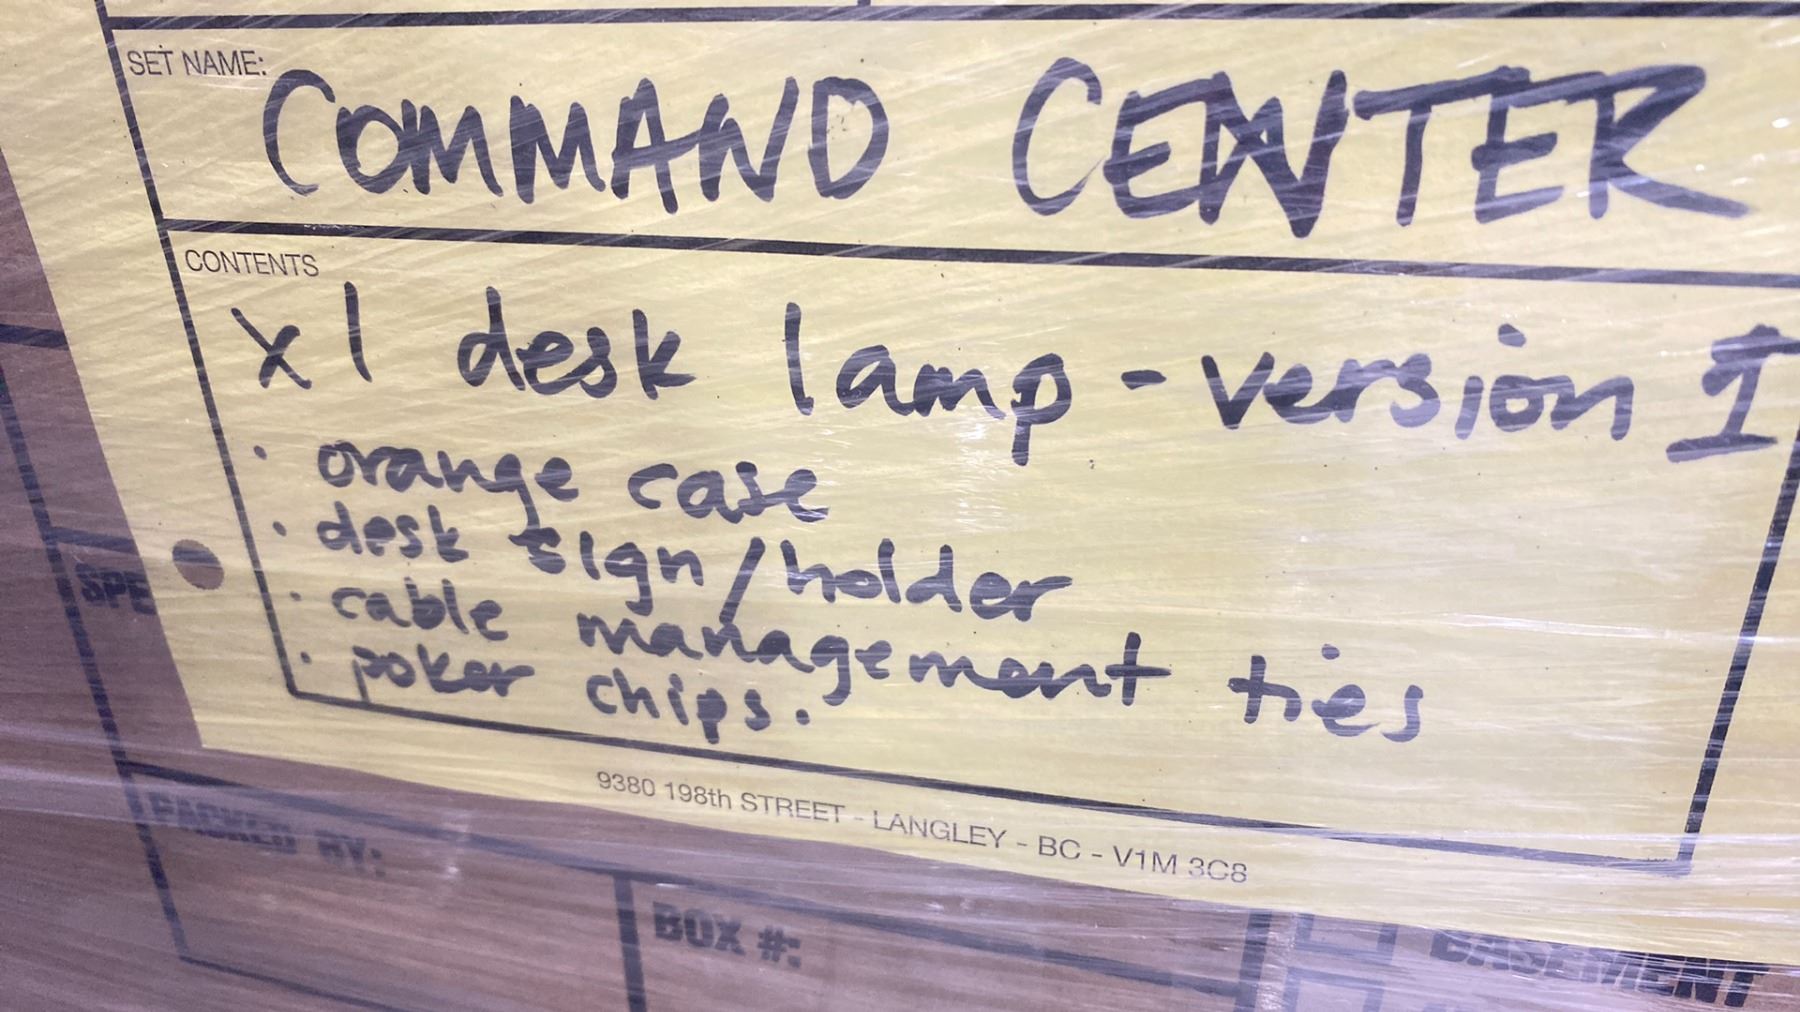 SET NAME:
COMMAND CENTER
CONTENTS
x1 desk lamp - version I
· orange case
· desk sign/holder
· cable management ties
· poker chips.
9380 198th STREET - LANGLEY - BC - V1M 3C8
SPE
PACKED BY:
BOX #:
BASEMENT